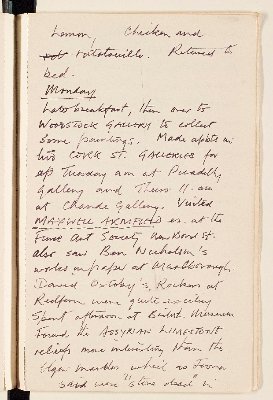 Lemon, Chicken and
ratatouille. Retired to
bed.
Monday
Late breakfast, then over to
WOODSTOCK GALLERY to collect
some paintings. Made appts in
two CORK ST. GALLERIES for
Tuesday am at Piccadilly
Gallery and Thurs 11. am
at Chande Gallery. Visited
MAXWELL ARMFIELD ex. at the
Fine Art Society New Bond St.
also saw Ben Nicholson's
works on paper at Marlborough.
David Oxtoby's, Rockers at
Redfern were quite exciting
Spent afternoon at British Museum
Found the ASSYRIAN LIMESTONE
reliefs more interesting than the
Elgin marbles which as Fiona
said were "stone dead" in